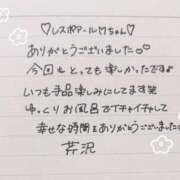 ♡レスポアール🐱ちゃん♡
ありがとうございました♡
今回もとっても楽しかったですよ
いつも手品楽しみにしてます笑
ゆっくりお風呂でイチャイチャして
幸せな時間をありがとうございました
芹沢